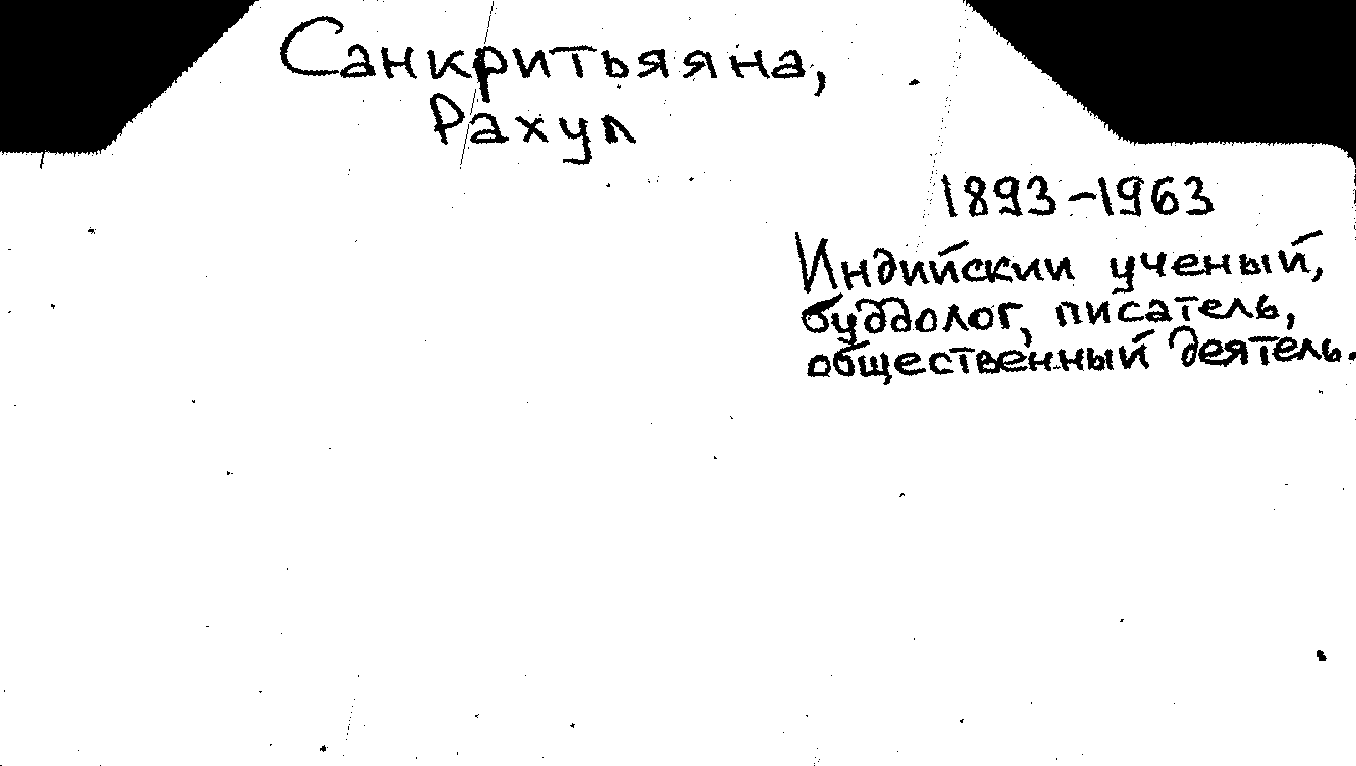 Санкритьяяна,
Рахул
1893-1963
Индийский ученый,
буддолог, писатель,
общественный деятель.